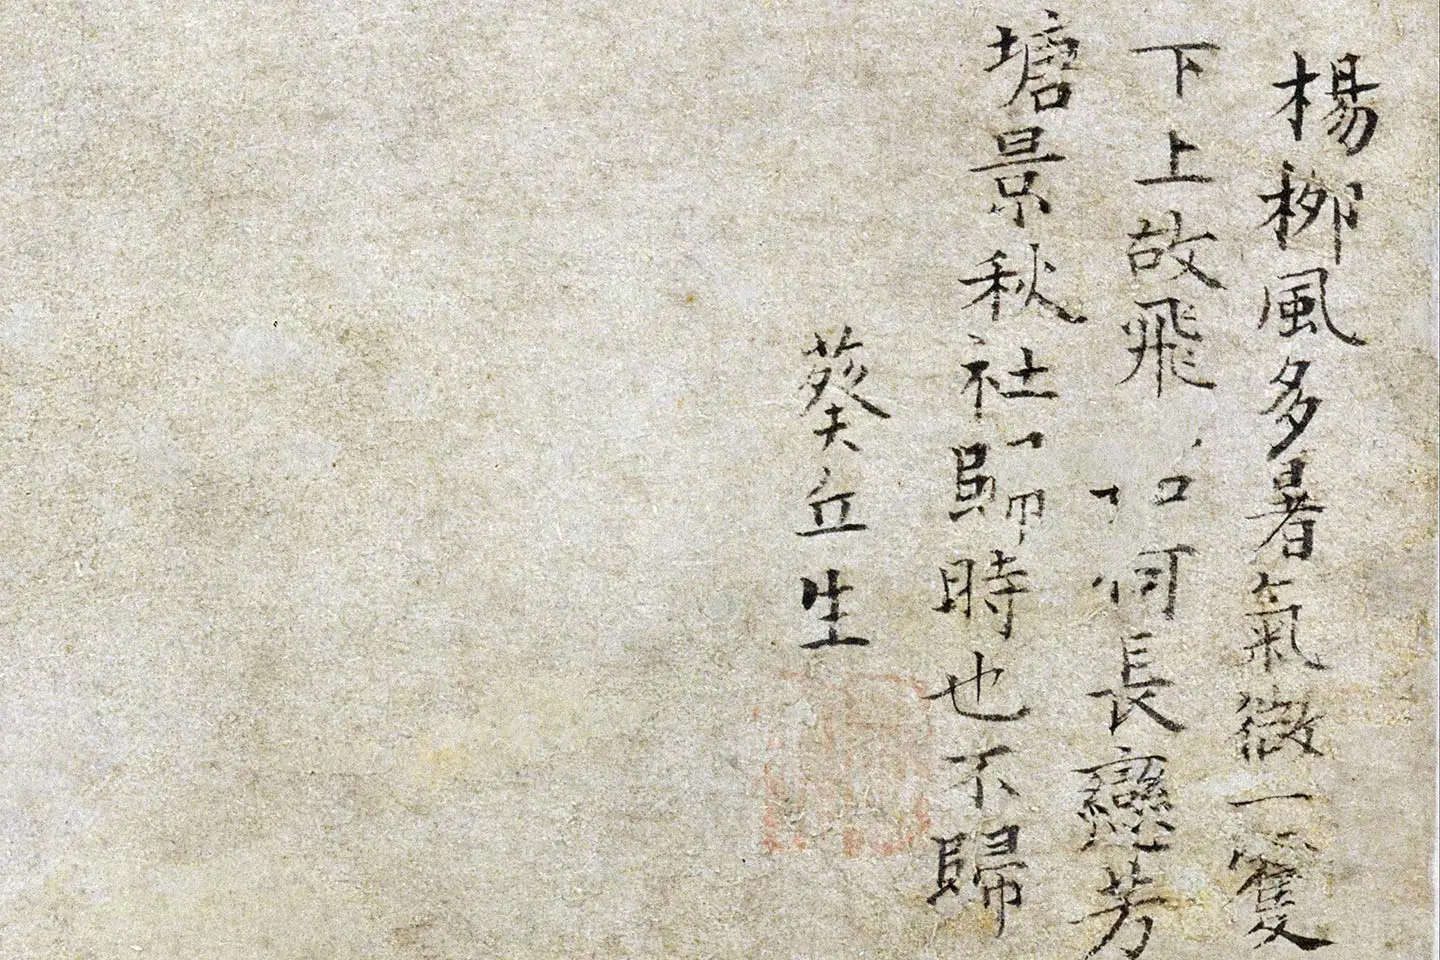 楊柳風多暑氣微一雙
下上故飛 如何長戀芳
塘景秋社歸時也不歸
葵丘生